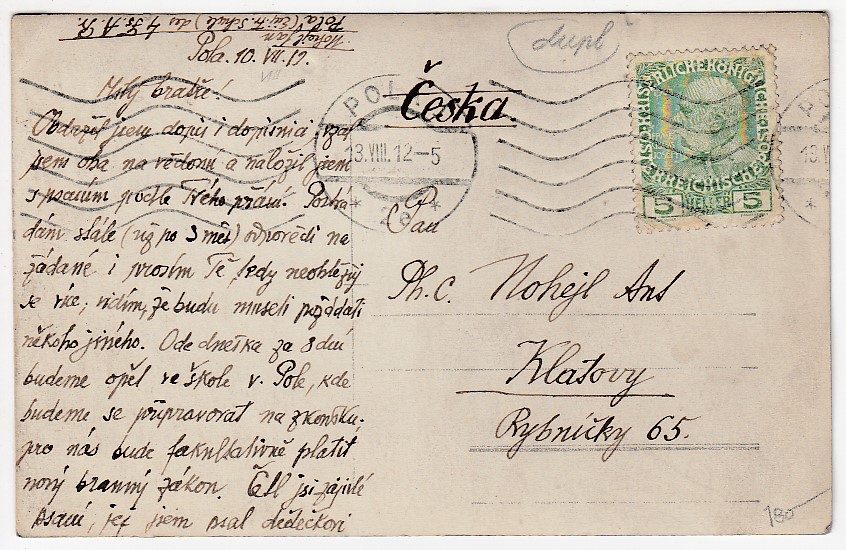 Nohejl Jan
Pola (Schule) des 4
Pola 10. VII. 12.
VIII
Milý bratře!
Obdržel jsem dopis i dopisnici, vzal
jsem oba na vědomí a naložil jsem
s psaním podle Tvého přání. Postrá
dám stále (už po 3 měs) odpovědi na
žádané i prosím Tě, tedy neobtěžuj
se více; vidím, že budu museti požádati
někoho jiného. Ode dneška za 8 dnů
budeme opět ve škole v Pole, kde
budeme se připravovat na zkoušku.
pro nás bude fakultativně platit
nový branný zákon. Četl jsi zajisté
psaní, jež jsem psal dědečkovi
dupl
Česka.
POLA
13.VIII.12-5
* 2 e *
PO
13.V
KAISERLICHE KÖNIGLICHE
ÖSTERREICHISCHE POST
5 HELLER 5
Pan
Ph. C. Nohejl Ant
Klatovy
Rybníčky 65.
180